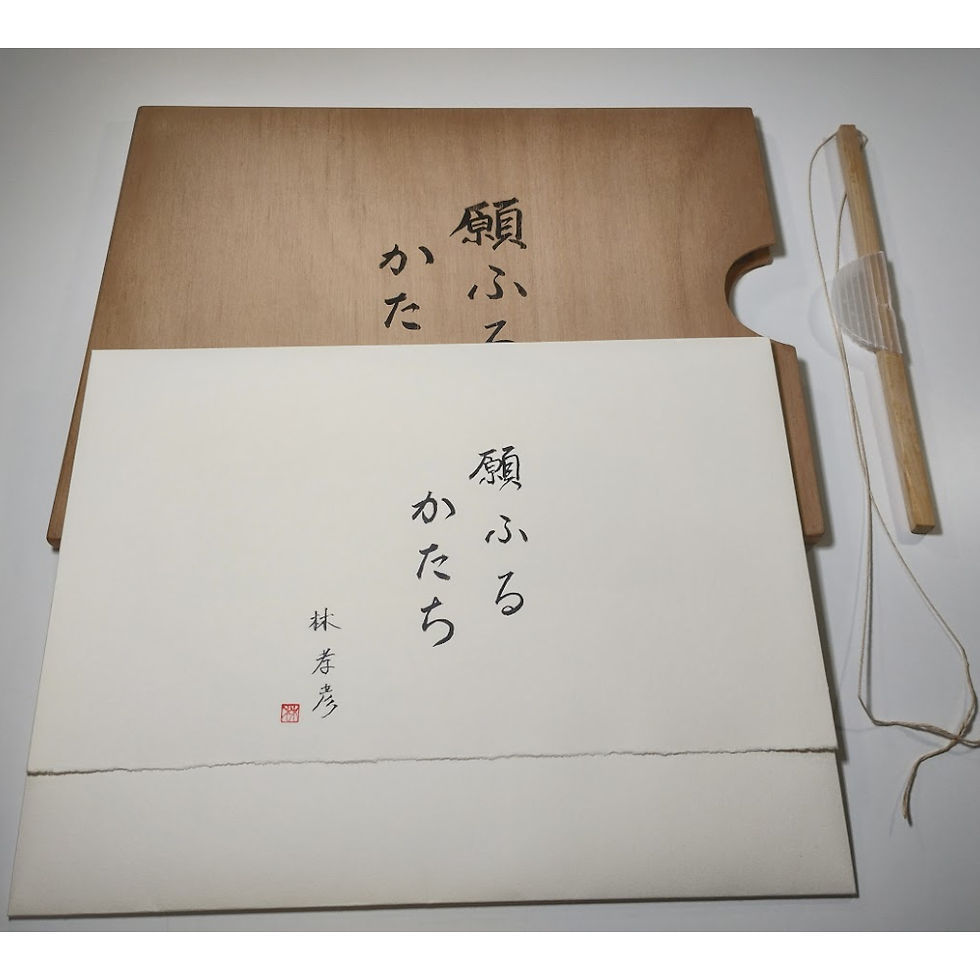 願ふる
かた
願ふる
かたち
林孝彦
林